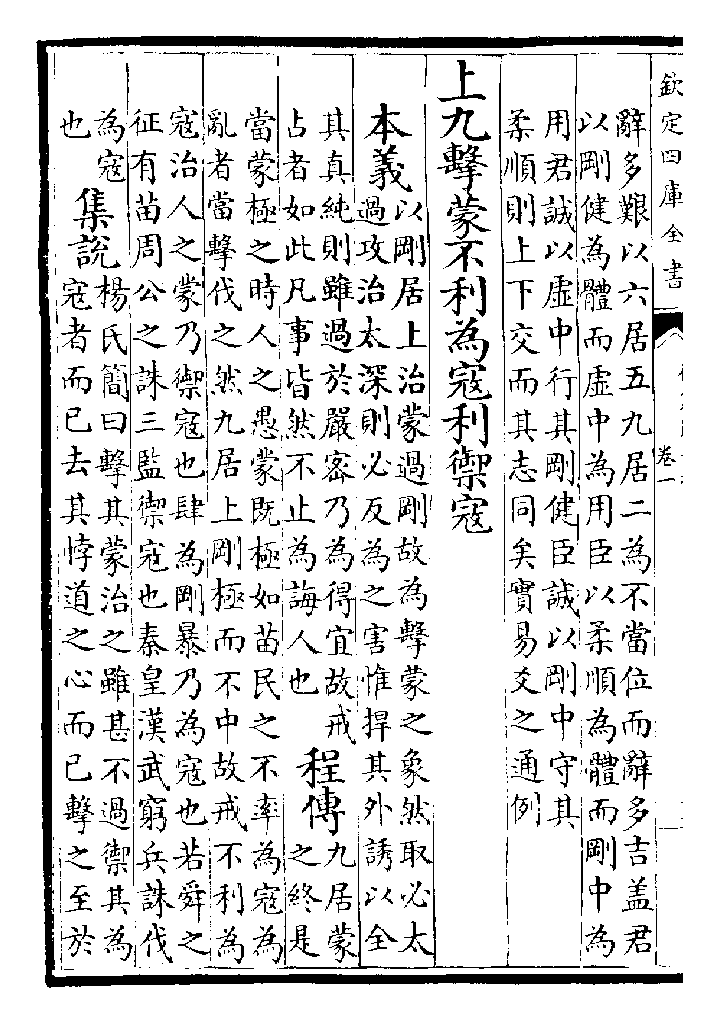 欽定四庫全書
卷一
辭多艱以六居五九居二為不當位而辭多吉盖君
以剛健為體而虚中為用臣以柔順為體而剛中為
用君誠以虚中行其剛健臣誠以剛中守其
柔順則上下交而其志同矣實易爻之通例
上九擊蒙不利為寇利禦寇
本義以剛居上治蒙過剛故為擊蒙之象然取必太
過攻治太深則必反為之害惟捍其外誘以全
其真純則雖過於嚴密乃為得宜故戒
占者如此凡事皆然不止為誨人也
程傳九居蒙
之終是
當蒙極之時人之愚蒙既極如苗民之不率為寇為
亂者當擊伐之然九居上剛極而不中故戒不利為
寇治人之蒙乃禦寇也肆為剛暴乃為寇也若舜之
征有苗周公之誅三監禦寇也秦皇漢武窮兵誅伐
為寇
也
集説楊氏簡曰擊其蒙治之雖甚不過禦其為
寇者而已去其悖道之心而已擊之至於